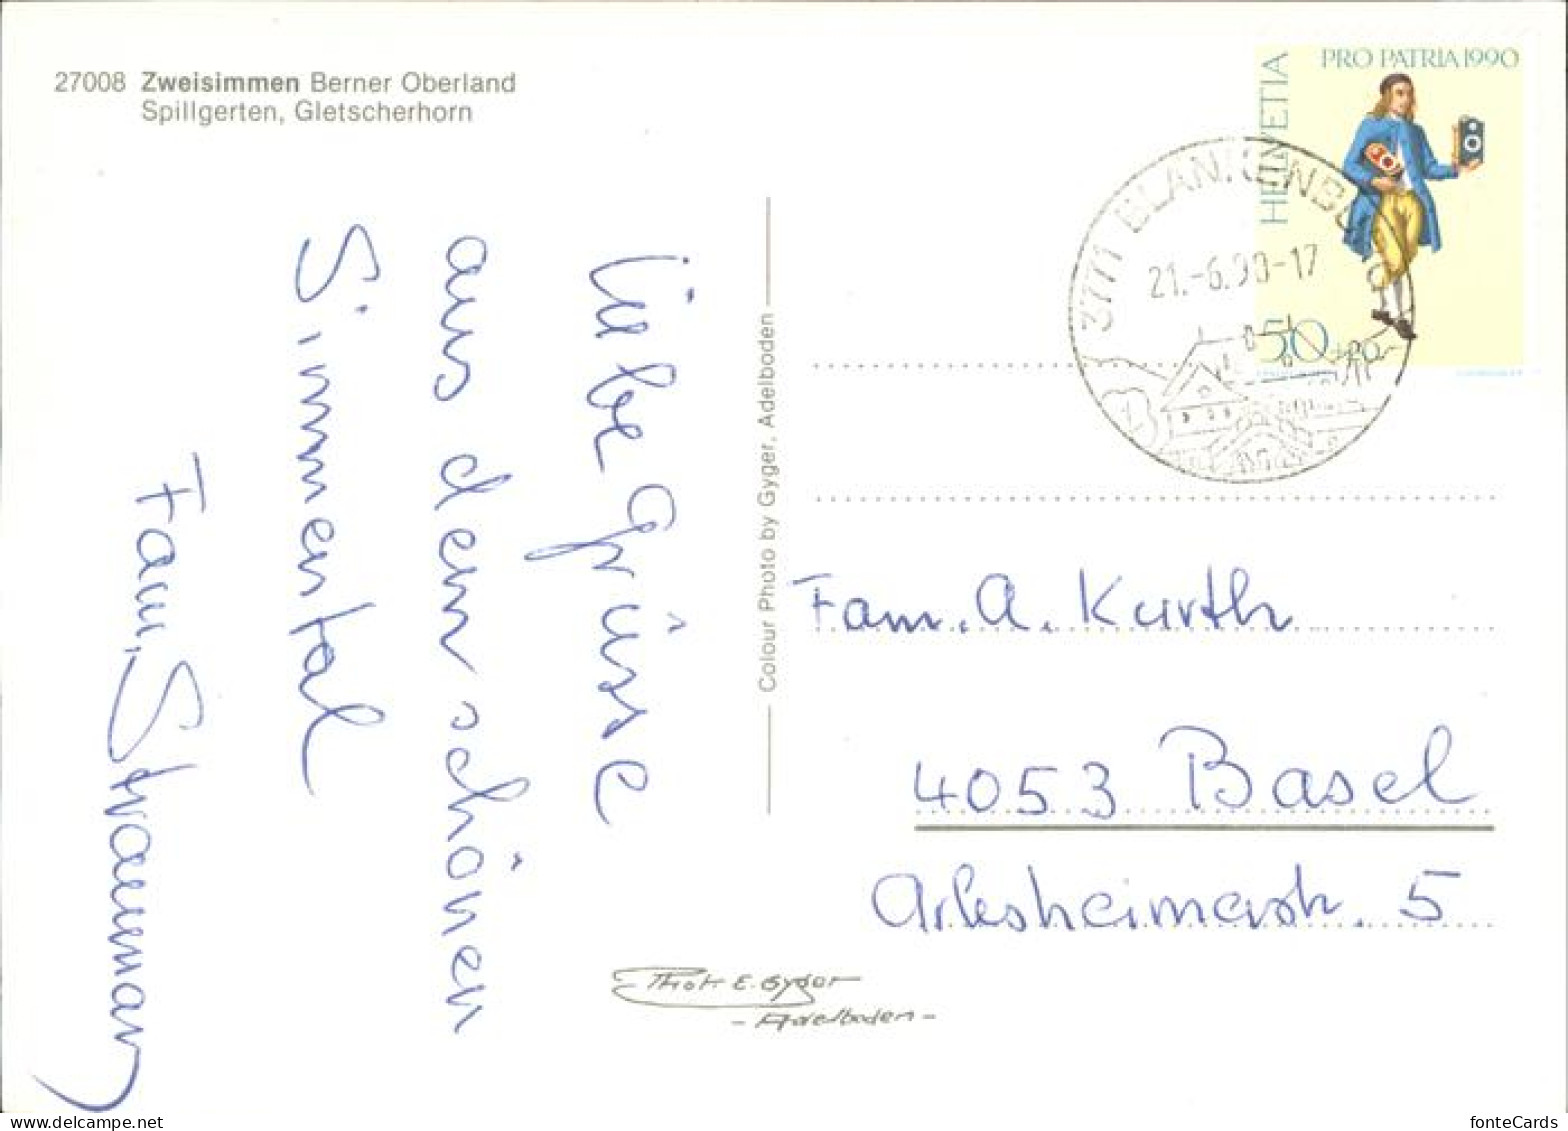 27008 Zweisimmen Berner Oberland
Spillgerten, Gletscherhorn
PRO PATRIA 1990
HELVETIA
50+20
3771 BLANKENBURG
21.-6.90-17
Liebe Grüsse
aus dem schönen
Simmental
Fam. Straumann
Colour Photo by Gyger, Adelboden
Fam. A. Kurth
4053 Basel
Arlesheimerstr. 5
Phot. E. Gyger
- Adelboden -
fonteCards